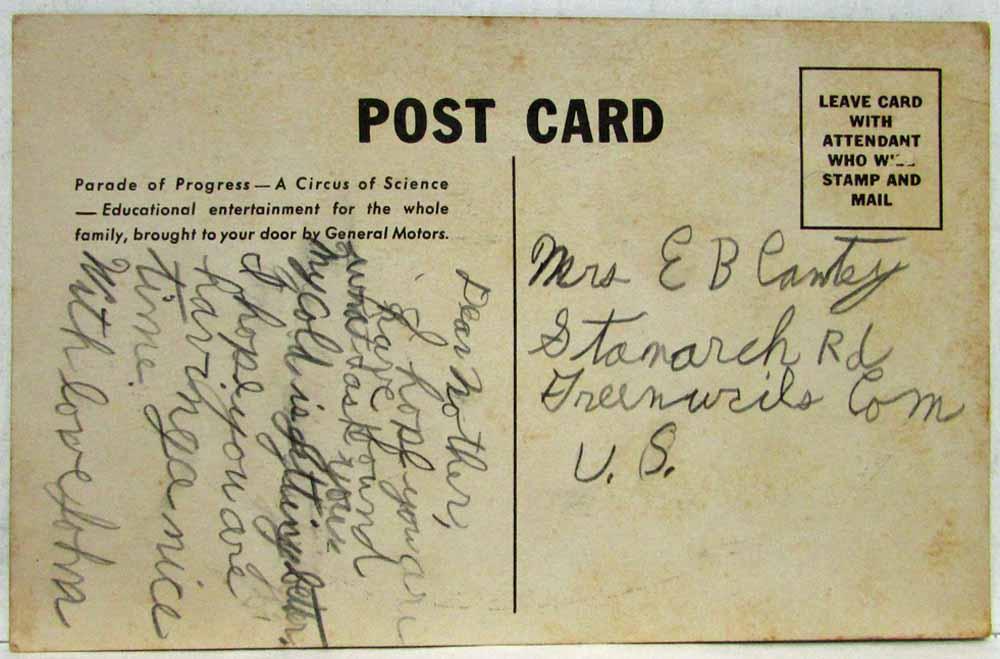 POST CARD
LEAVE CARD
WITH
ATTENDANT
WHO
STAMP AND
MAIL
Parade of Progress — A Circus of Science
— Educational entertainment for the whole
family, brought to your door by General Motors.
Dear Mother,
I hope you are
have found
your
My cold is getting better.
I hope you are
having a nice
time.
With love John
Mrs E B
Stanarch Rd
Com
U. S.